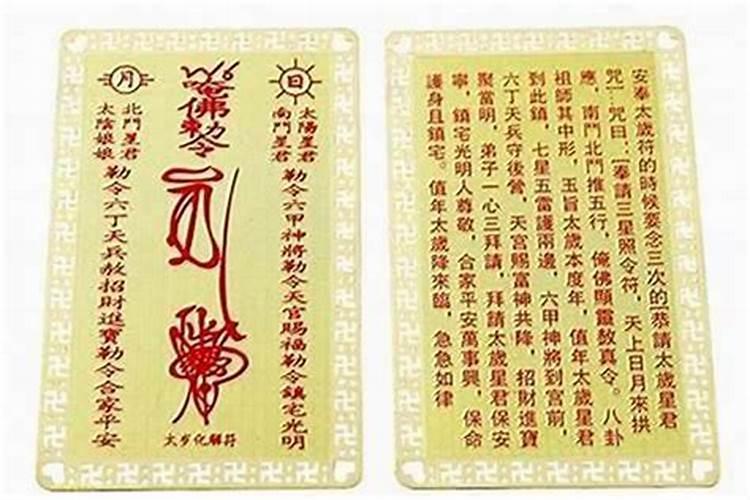 日
太陽星君
南鬥星君
勒令六甲神將勒令天官賜福勒令鎮宅光明
唵佛勅令
太岁化解符
月
北鬥星君
太陰娘娘
勒令六丁天兵敕招財進寶勒令合家平安
安奉太歲符的時候要念三次的[恭請太歲星君
咒]…咒曰：[奉請三星照令符，天上日月來拱
應，南鬥北鬥推五行，俺佛顯靈敕真令。八卦
祖師其中形，玉旨太歲本度年，值年太歲星君
到此鎮，七星五雷護兩邊，六甲神將到宮前，
六丁天兵守後營，天宮賜富神共降，招財進寶
聚當明，弟子一心三拜請，拜請太歲星君保安
寧，鎮宅光明人尊敬，合家平安萬事興，保命
護身且鎮宅。值年太歲降來臨，急急如律